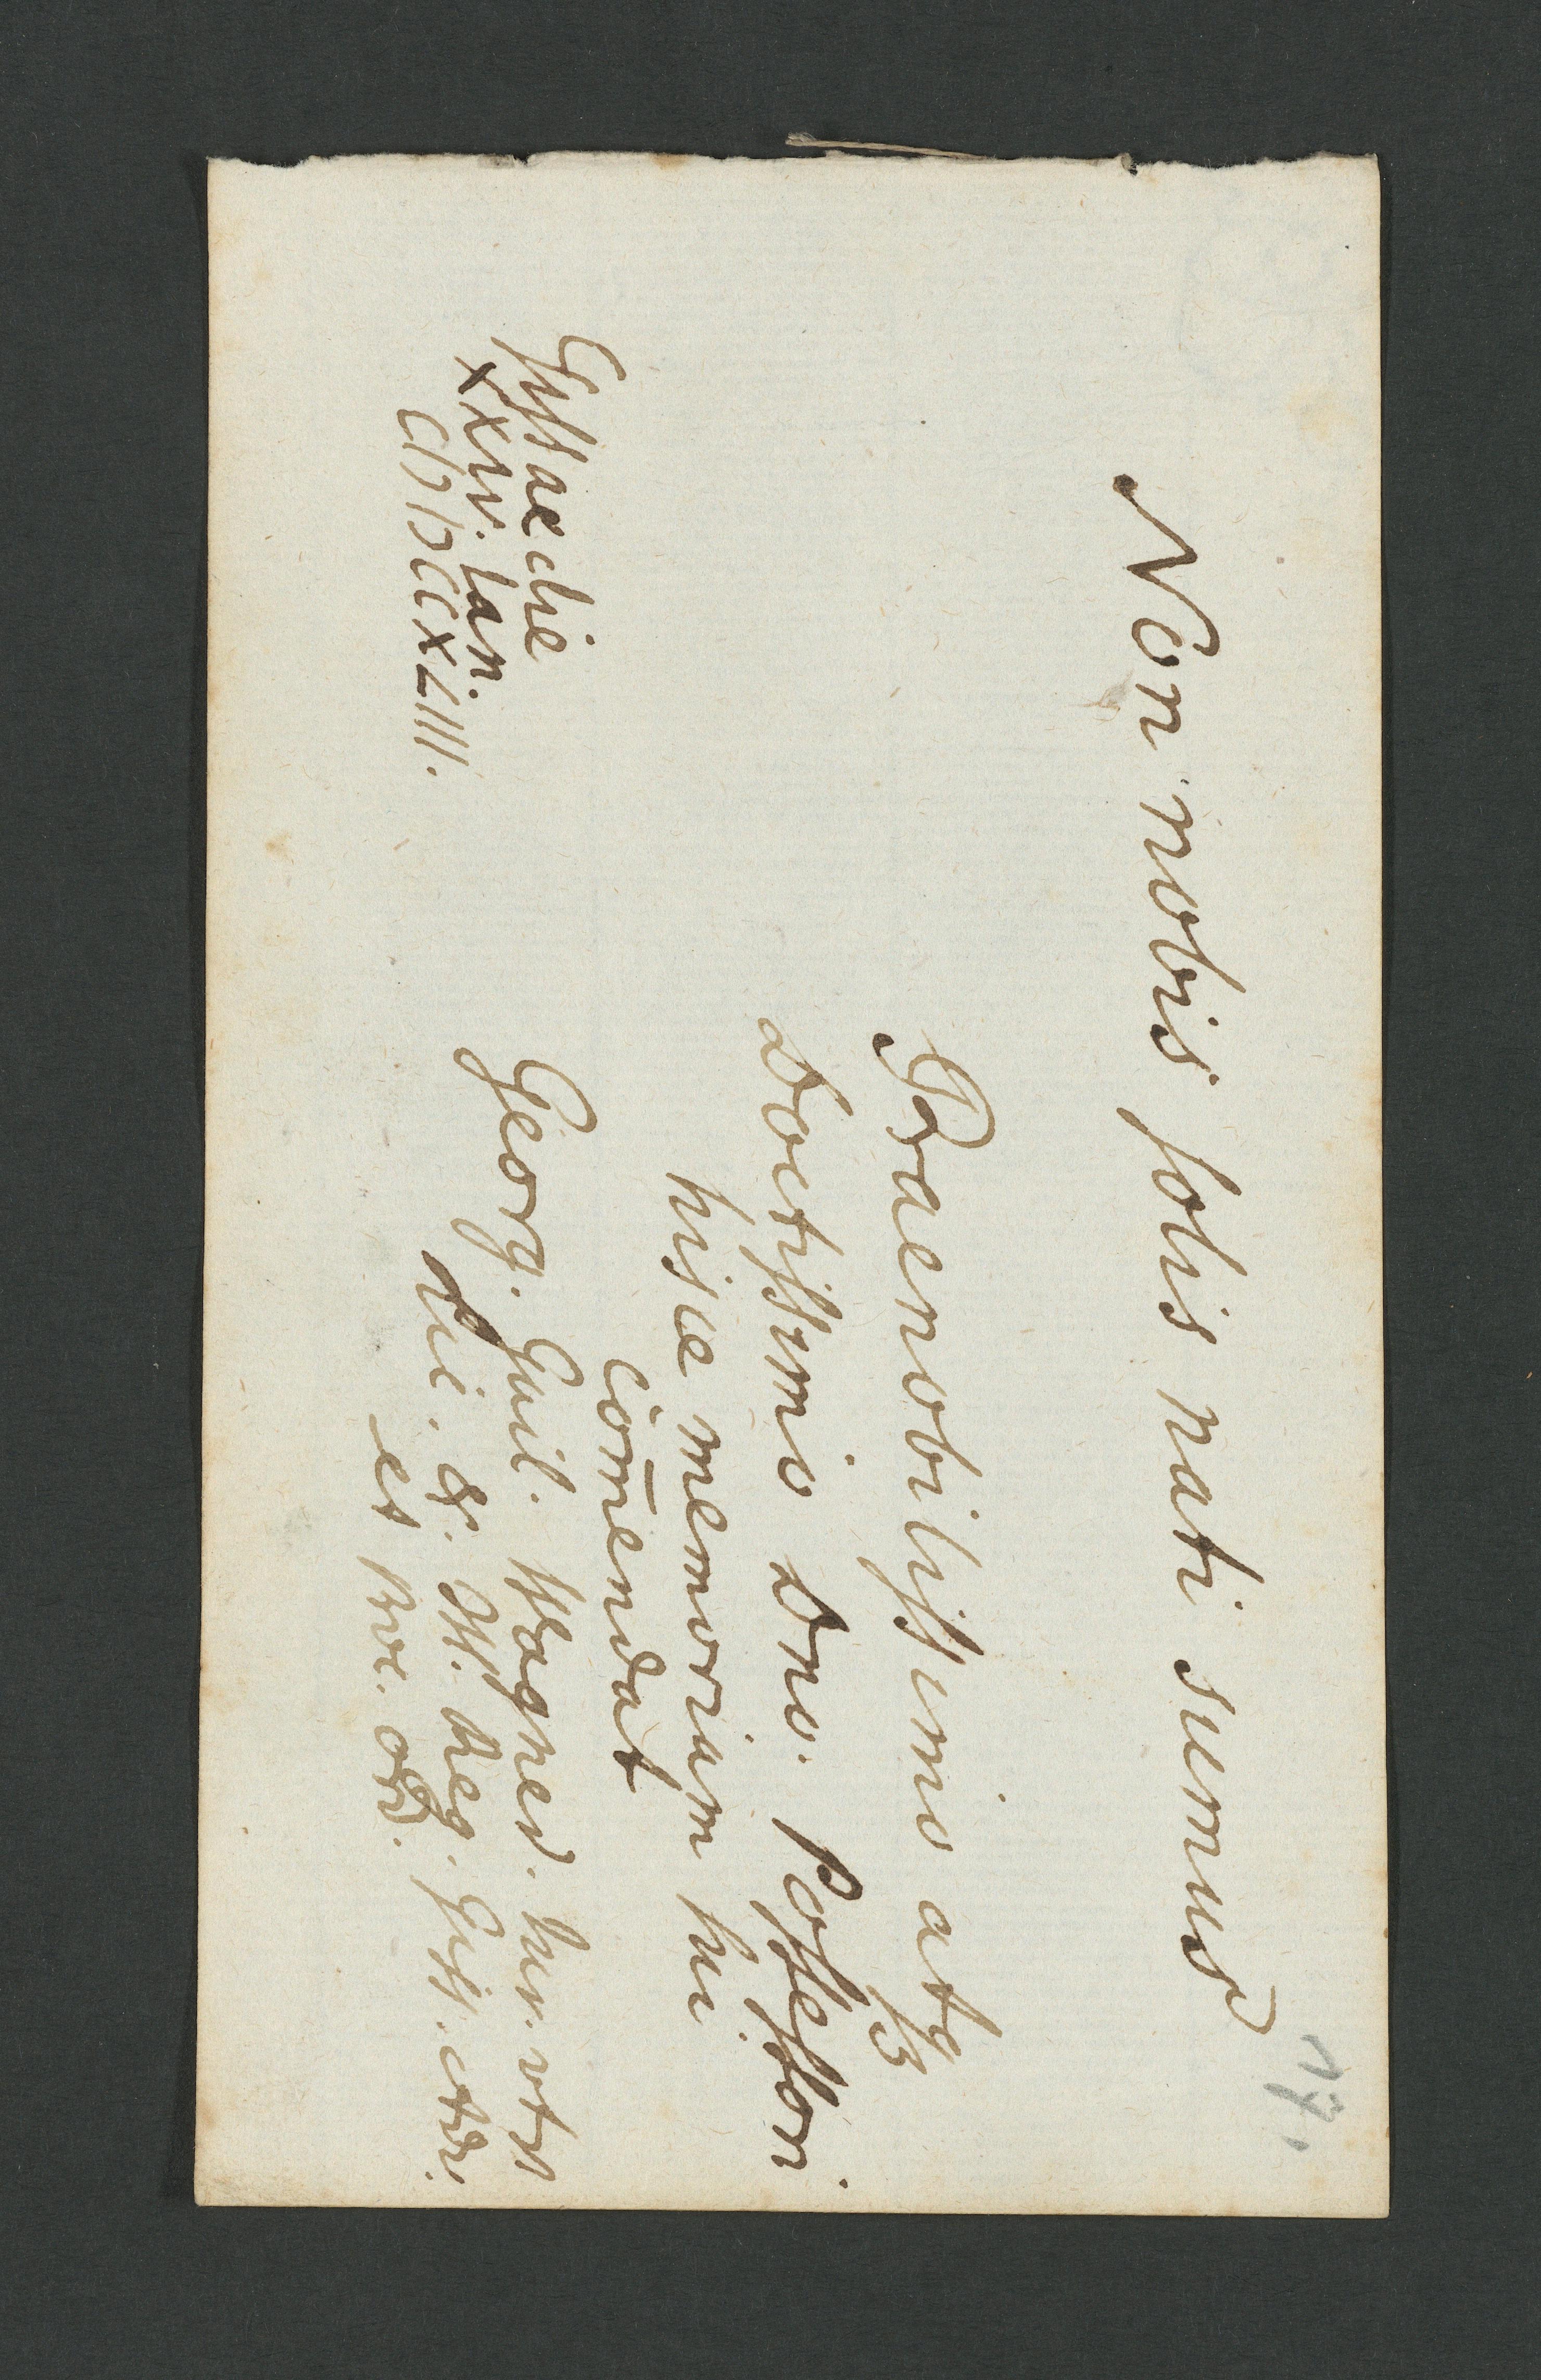 17.
Non nobis solis nati sumus
Praenobilissimo atq3
Doctissimo Dno. Possessori
hisce memoriam sui
com̄endat
Georg. Guil. Wagner. iur. utr.
Lic. & Reg. Giss. 
et Prof. ord.
Gissae die
XXIV. Ian.
CIƆIƆCCXLIII.